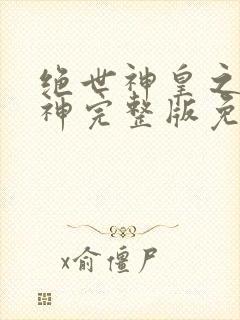 绝世神皇之
神完整版免
x俞僵尸